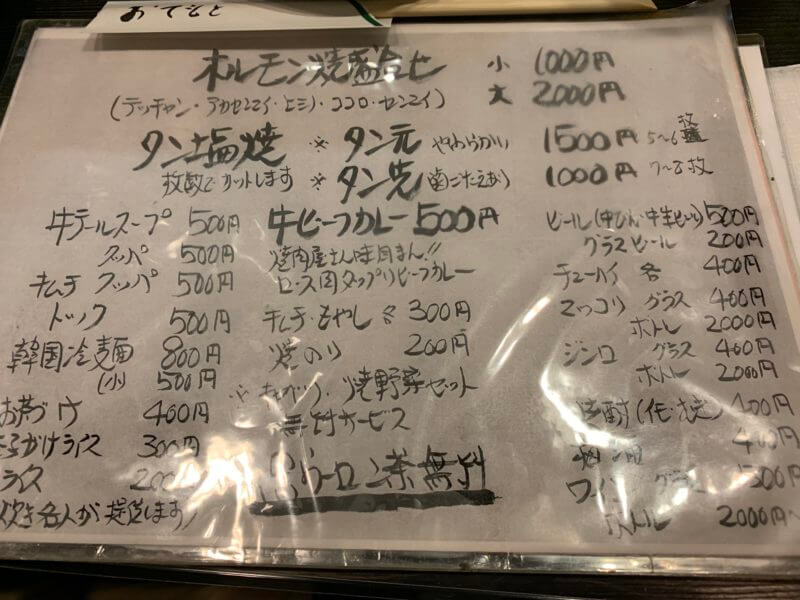 おてもと
ホルモン焼盛合せ 小 1000円
(テッチャン・アカセンマイ・ヒミノ・ココロ・センマイ) 大 2000円
タン塩焼 ※ タン元 やわらかい 1500円 5〜6枚
枚数でカットします ※ タン先 (歯ごたえあり) 1000円 7〜8枚
牛テールスープ 500円
クッパ 500円
キムチクッパ 500円
トック 500円
韓国冷麺 800円
(小) 500円
お茶づけ 400円
子かけライス 300円
ライス 200
炊き名人が提供します)
牛ビーフカレー 500円
焼肉屋さん
ロース肉タップリビーフカレー
キムチ・もやし 各 300円
焼のり 200円
※ 焼野菜セット
無料サービス
ウーロン茶無料
ビール(中びん・中生ビール) 500円
グラスビール 200円
チューハイ 各 400円
マッコリ グラス 400円
ボトル 2000円
ジンロ グラス 400円
ボトル 2000円
焼酎 400円
400円
ワイン グラス 500円
ボトル 2000円〜